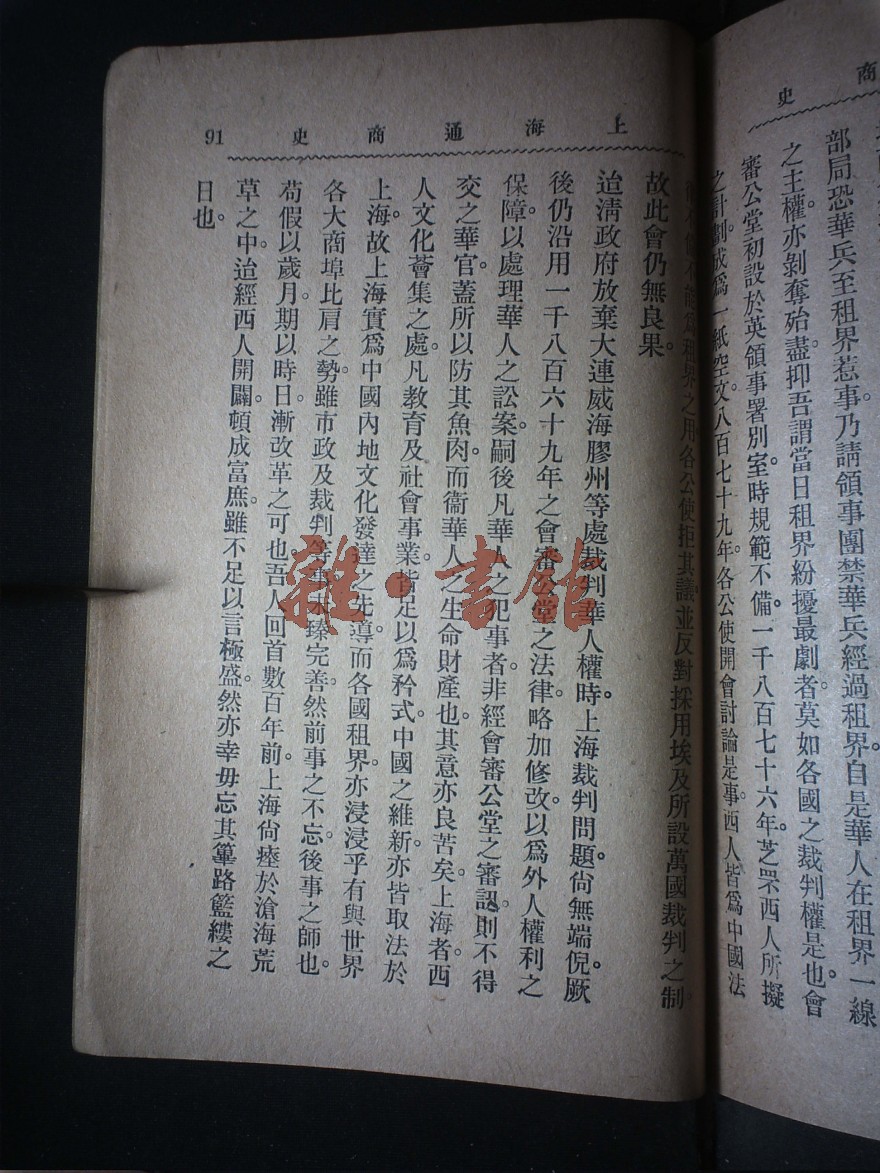 商史
部局恐華兵至租界惹事。乃請領事團禁華兵經過租界。自是華人在租界一線
之主權。亦剝奪殆盡。抑吾謂當日租界紛擾最劇者。莫如各國之裁判權是也。會
審公堂初設於英領事署別室。時規範不備。一千八百七十六年。芝罘西人所擬
之計劃。成爲一紙空文。八百七十九年。各公使開會討論是事。西人皆爲中國法
上海通商史
91
租界之用各公使拒其議並反對採用埃及所設萬國裁判之制。
故此會仍無良果。
迨淸政府放棄大連威海膠州等處裁判華人權時。上海裁判問題。尙無端倪。厥
後仍沿用一千八百六十九年之會審公堂之法律。略加修改。以爲外人權利之
保障。以處理華人之訟案。嗣後凡華人之犯事者。非經會審公堂之審認。則不得
交之華官。蓋所以防其魚肉。而衞華人之生命財產也。其意亦良苦矣。上海者。西
人文化薈集之處。凡教育及社會事業。皆足以爲矜式。中國之維新。亦皆取法於
上海。故上海實爲中國內地文化發達之先導。而各國租界。亦浸浸乎有與世界
各大商埠比肩之勢。雖市政及裁判等事。未臻完善。然前事之不忘。後事之師也。
苟假以歲月。期以時日。漸改革之可也。吾人回首數百年前。上海尙瘞於滄海荒
草之中。迨經西人開闢。頓成富庶。雖不足以言極盛。然亦幸毋忘其篳路籃縷之
日也。
雜·書館